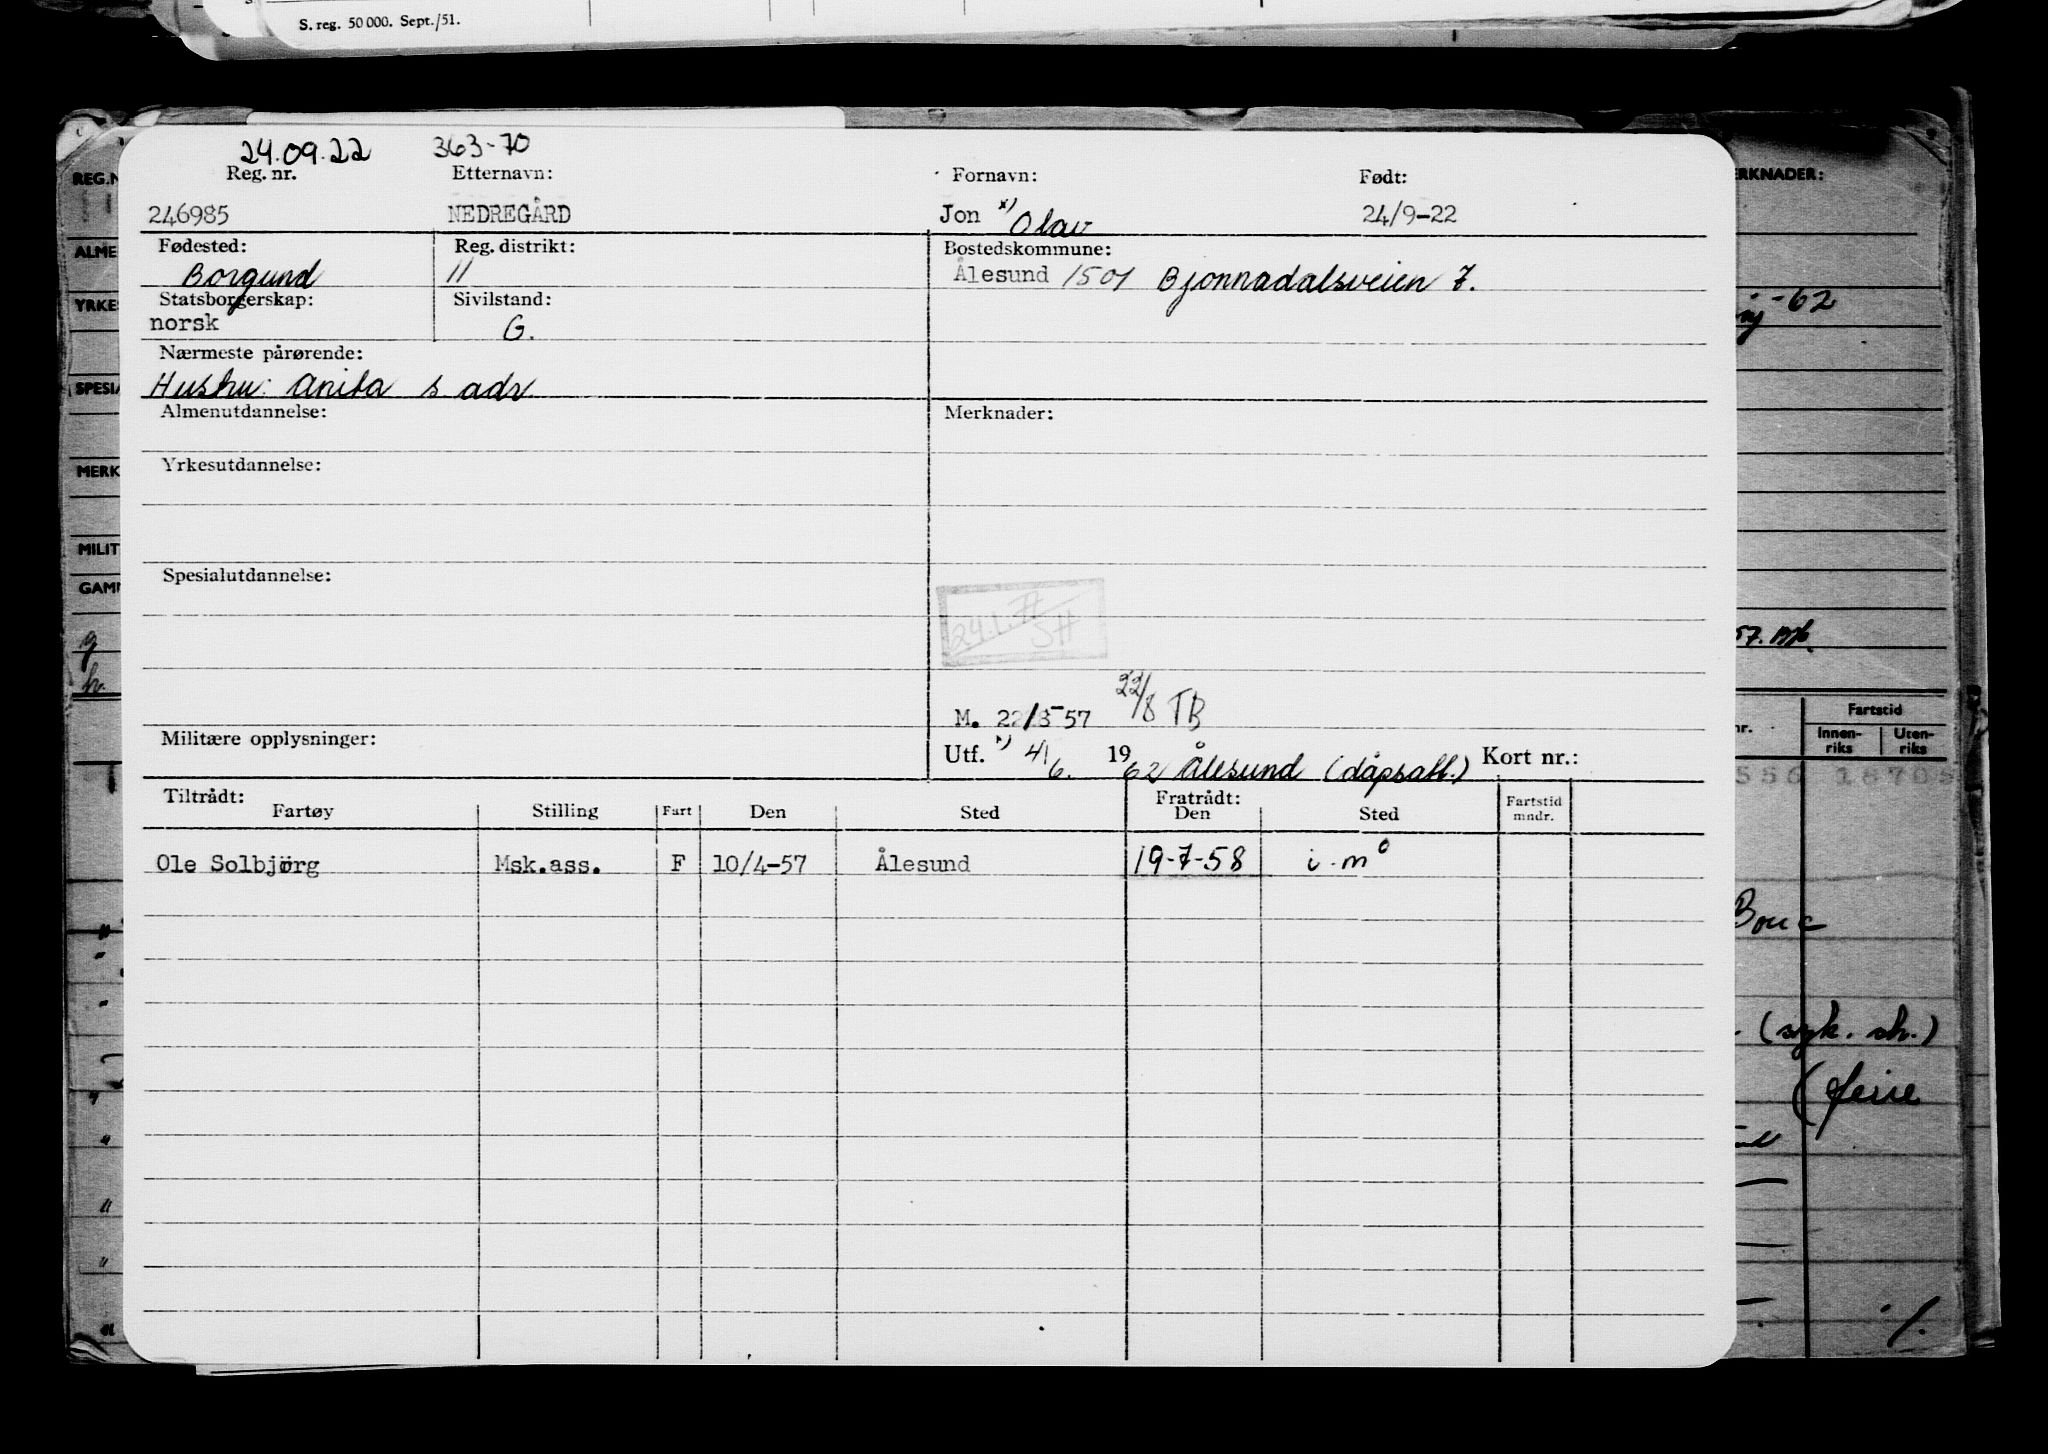 S. reg. 50 000. Sept./51.
24.09.22 363-70
Reg. nr. Etternavn: Fornavn: Født:
246985 NEDREGÅRD Jon x) Olav 24/9-22
Fødested: Reg. distrikt: Bostedskommune:
Borgund 11 Ålesund 1501 Bjonnadalsveien 7.
Statsborgerskap: Sivilstand:
norsk G.
Nærmeste pårørende:
Hustru: Anita s. adr.
Almenutdannelse: Merknader:
Yrkesutdannelse:
Spesialutdannelse:
24.1. SH
M. 22/8-57 22/8 TB
Militære opplysninger: Utf. x) 4/6. 1962 Ålesund (dåpsatt.) Kort nr.:
Tiltrådt: Fratrådt:
Fartøy Stilling Fart Den Sted Den Sted Fartstid mndr.
Ole Solbjörg Msk.ass. F 10/4-57 Ålesund 19-7-58 i.m
REG.N
ALME
YRKE
SPESI
MERK
MILIT
GAM
ERKNADER:
-62
57.
nr. Fartstid
Innen-riks Uten-riks
556 18705
(syk. sh.)
(ferie